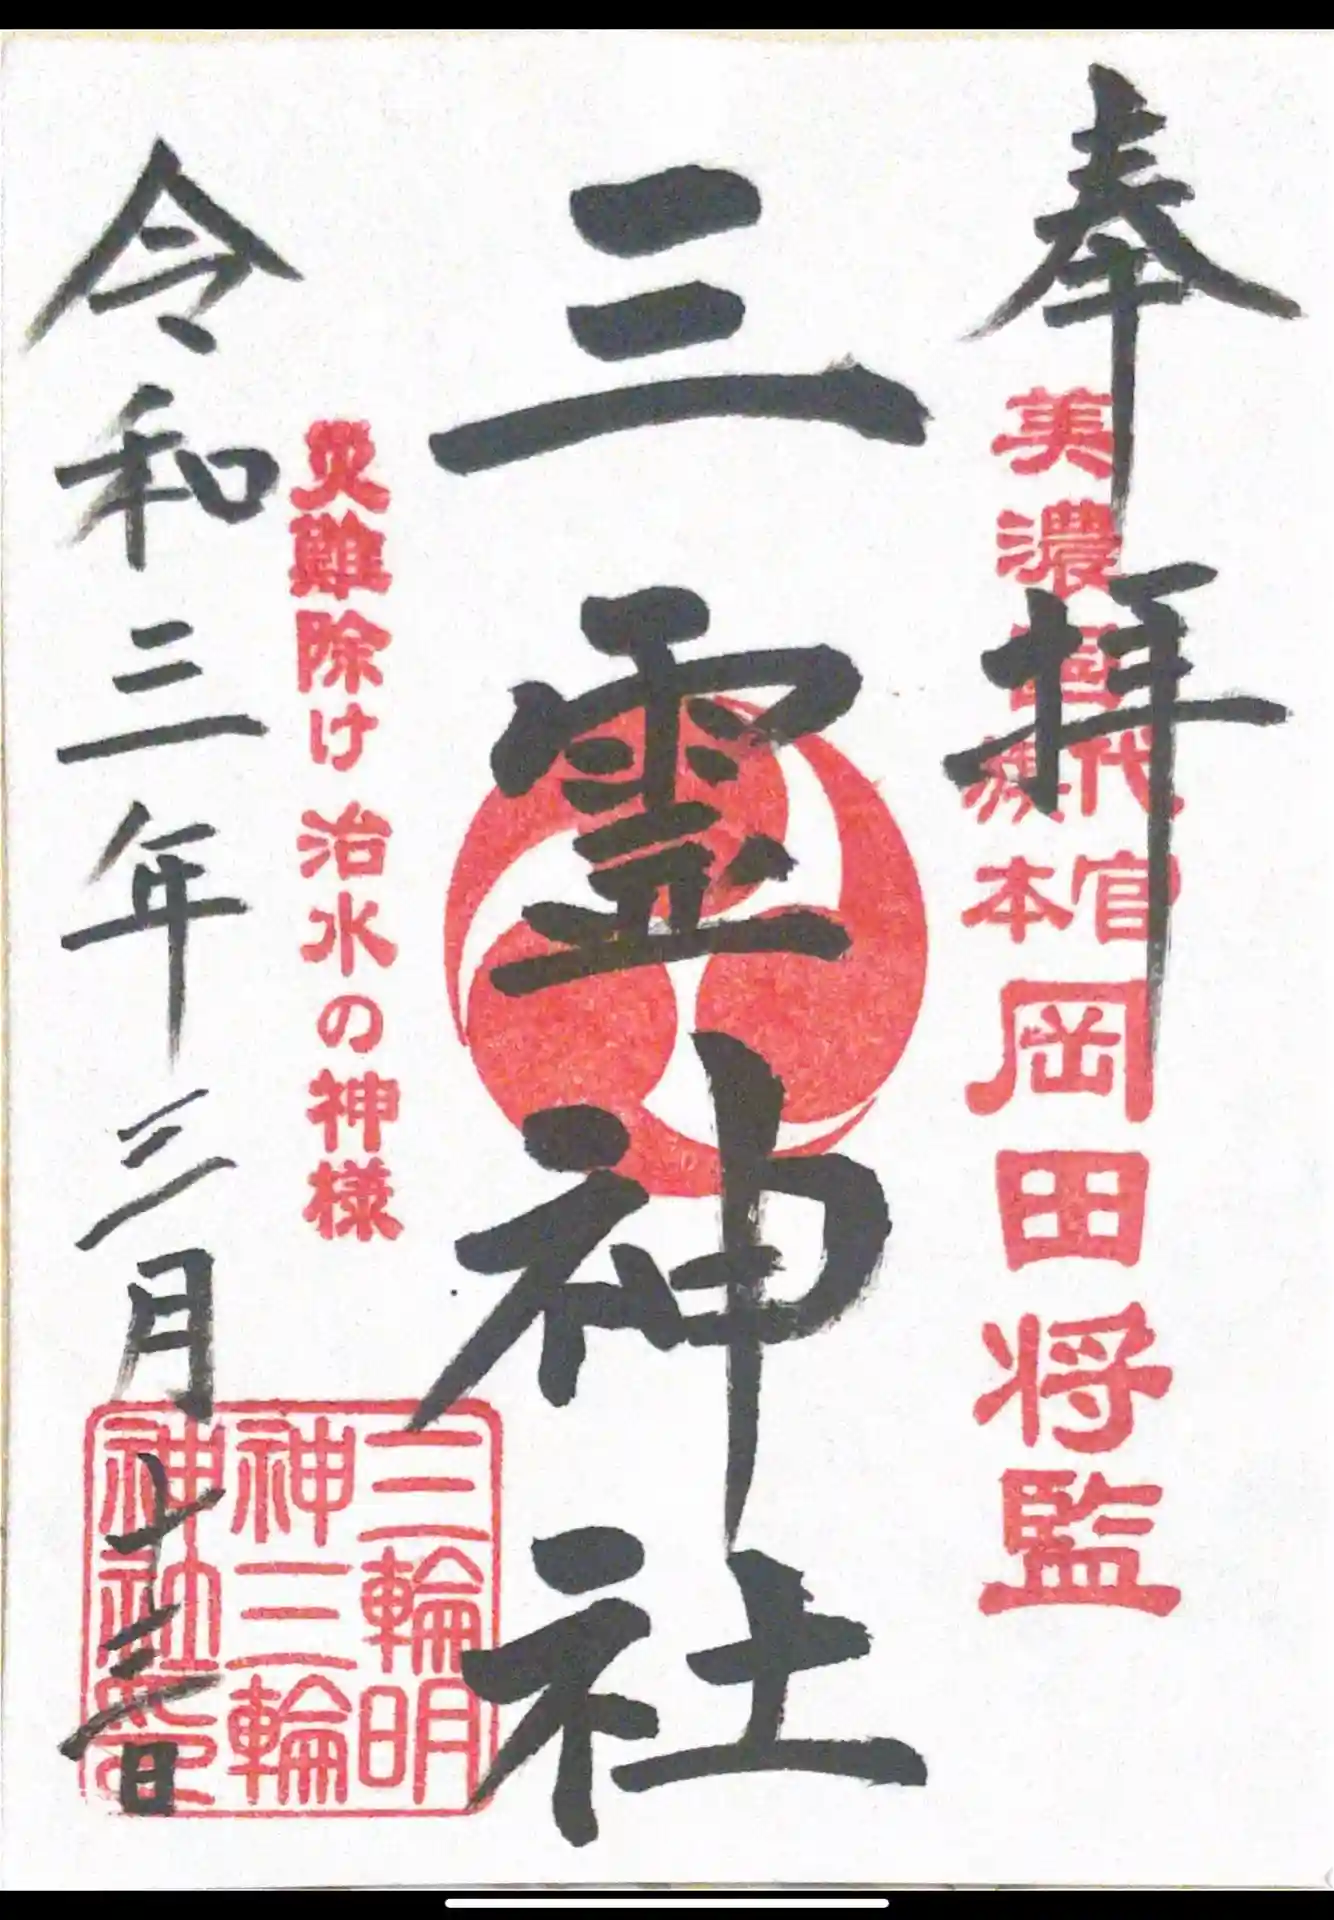 奉拝
美濃國代官
旗本
岡田将監
三霊神社
災難除け 治水の神様
令和三年三月十三日
三輪明
神三輪
神社印